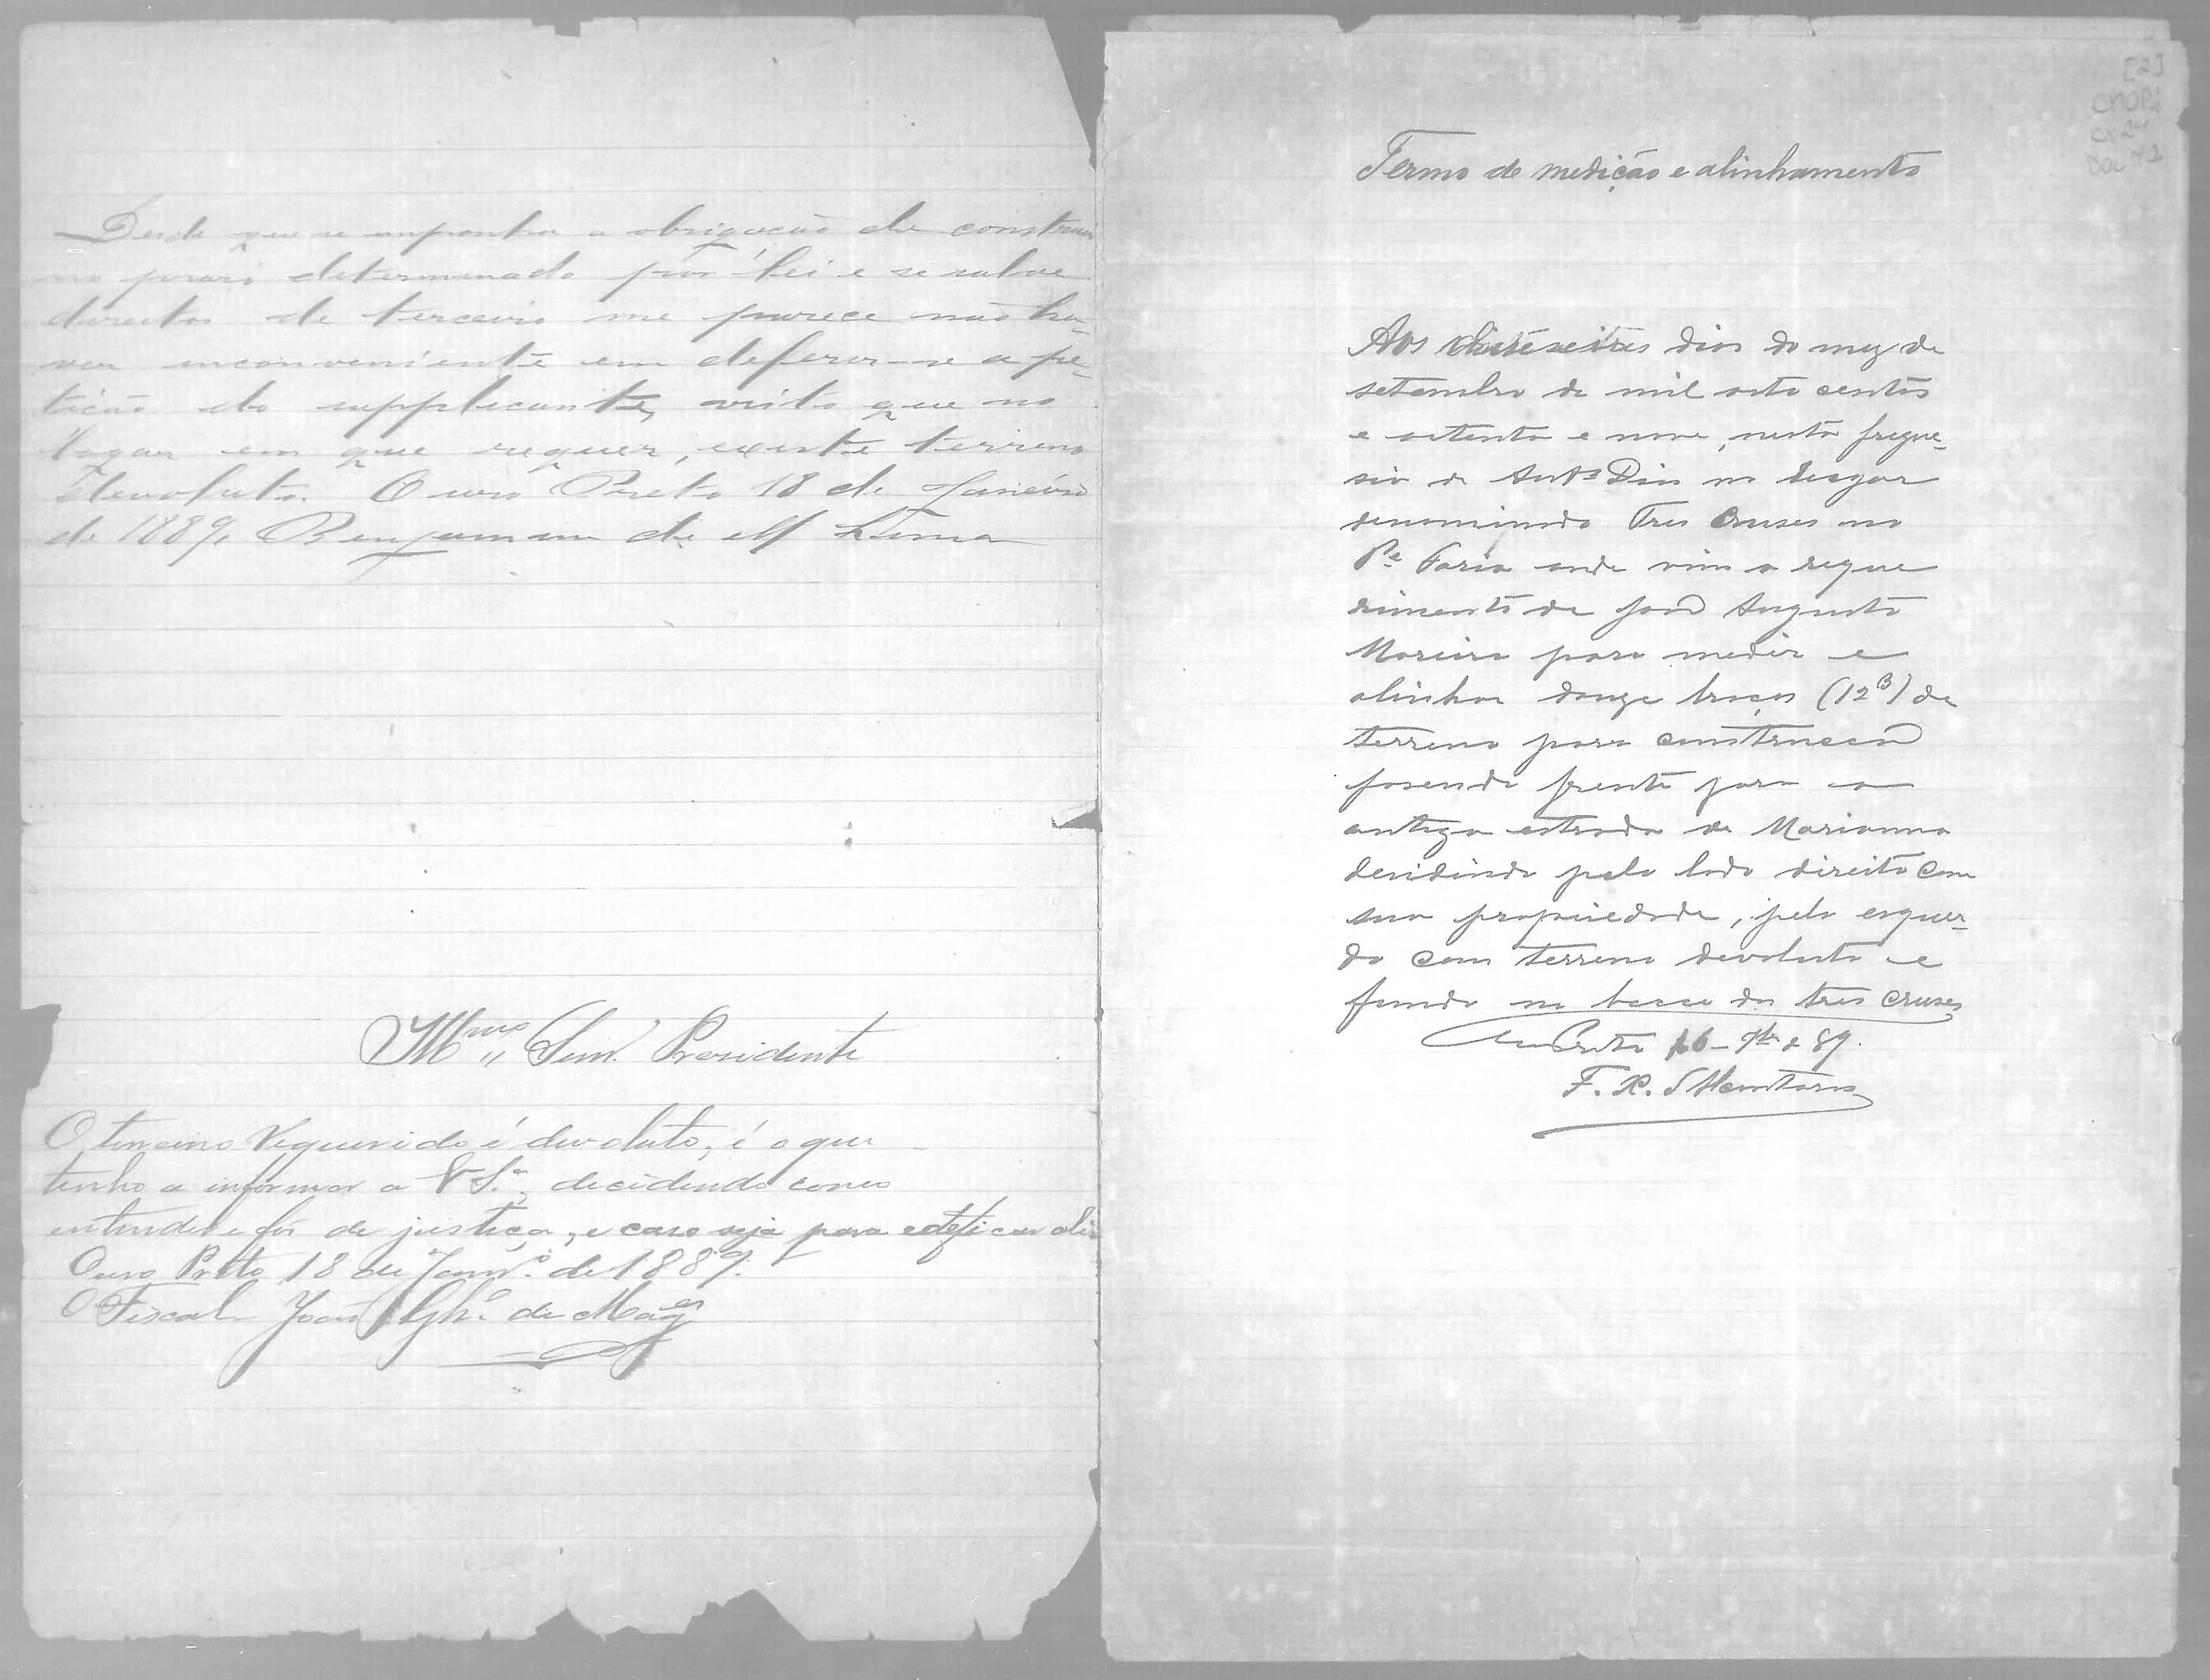 Desde que se imponha a obrigação de construir
no praso determinado por lei e se salve
direitos de terceiro me parece não ha-
ver inconveniente em deferir-se a pe-
tição do supplicante, visto que no
logar em que requer, existe terreno
devoluto. Ouro Preto 18 de Janeiro
de 1889. Benjamim de M Lima
Snr. Presidente
O terreno requerido é devoluto, é o que
tenho a informar a V S.ª, decidindo como
entender e fôr de justiça, e caso seja para edeficar ali
Ouro Preto 18 de Janr.º de 1889.
O Fiscal João de Mag.es
[2]
CMOP
CX 24
DOC 42
Termo de medição e alinhamento
Aos dias do mez de
setembro de mil oito centos
e oitenta e nove, nesta fregue-
sia de Antº Dias no lugar
denominado Tres Cruses no
Pe Faria onde vim a reque
rimento de João Augusto
Moreira para medir e
alinhar douze braças (12B) de
terreno para construcão
fasendo frente para a
antiga estrada de Marianna
devidindo pelo lado direito com
sua propriedade, pelo esquer-
do com terreno devoluto e
fundo no beco das tres cruses
Ouro Preto 16-9bro de 89.
F. X.